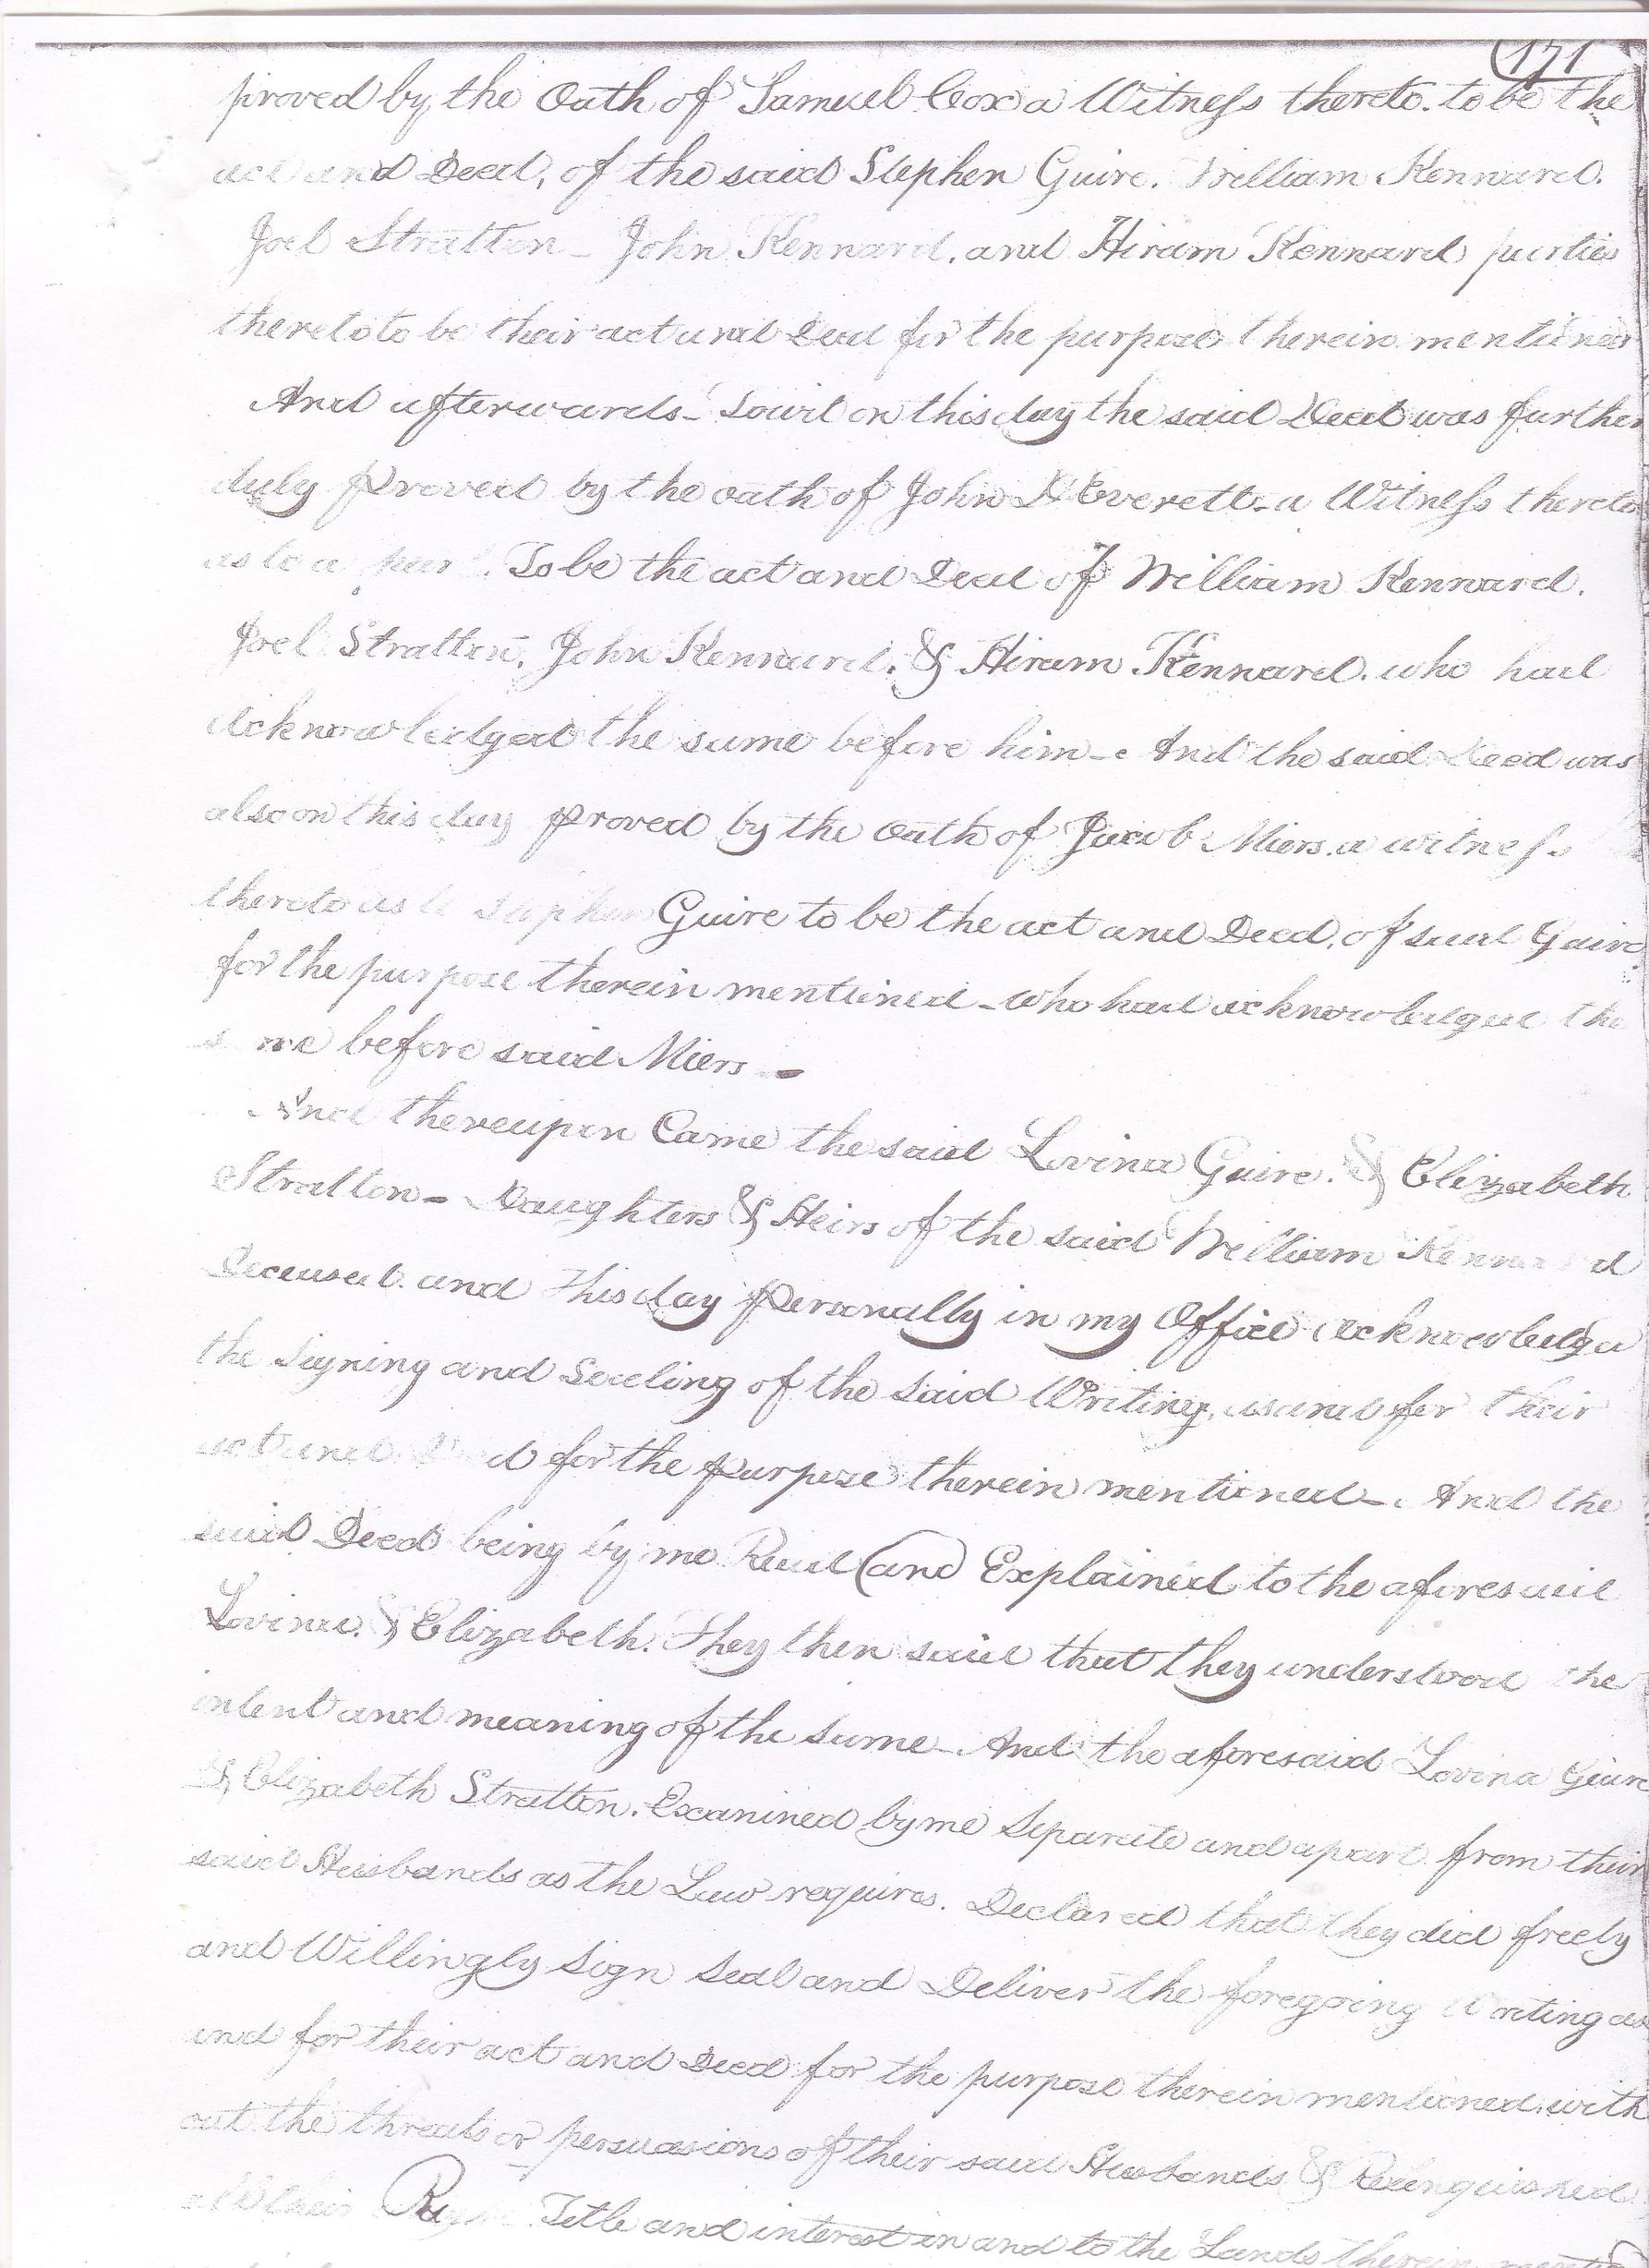 171
proved by the Oath of Samuel Cox a Witness thereto. to be the
act and Deed, of the said Stephen Guire. William Kennard.
Joel Stratton - John Kennard. and Hiram Kennard parties
thereto to be their act and Deed for the purposes therein mentioned
And afterwards - towit on this day the said Deed was further
duly proved by the oath of John D Everett - a Witness thereto
as to a part. To be the act and Deed of William Kennard.
Joel Stratton. John Kennard. & Hiram Kennard. who had
acknowledged the same before him -. And the said Deed was
also on this day proved by the Oath of Jacob Miers. a witness
thereto as to Stephen Guire to be the act and Deed, of said Guire
for the purpose therein mentioned - who had acknowledged the
same before said Miers -
And thereupon Came the said Lovina Guire. & Elizabeth
Stratton - Daughters & Heirs of the said William Kennard
Deceased. and this day personally in my Office acknowledged
the signing and sealing of the said Writing, as and for their
act and Deed for the purpose therein mentioned -. And the
said Deed being by me Read (and) Explained to the aforesaid
Lovina. & Elizabeth. They then said that they understood the
intent and meaning of the same - And the aforesaid Lovina Guire
& Elizabeth Stratton. Examined by me Separate and apart from their
said Husbands as the Law requires. Declared that they did freely
and Willingly sign seal and Deliver the foregoing Writing as
and for their act and Deed for the purpose therein mentioned. with
out the threats or persuasions of their said Husbands & Relinquished
all their Right Title and interest in and to the Lands therein